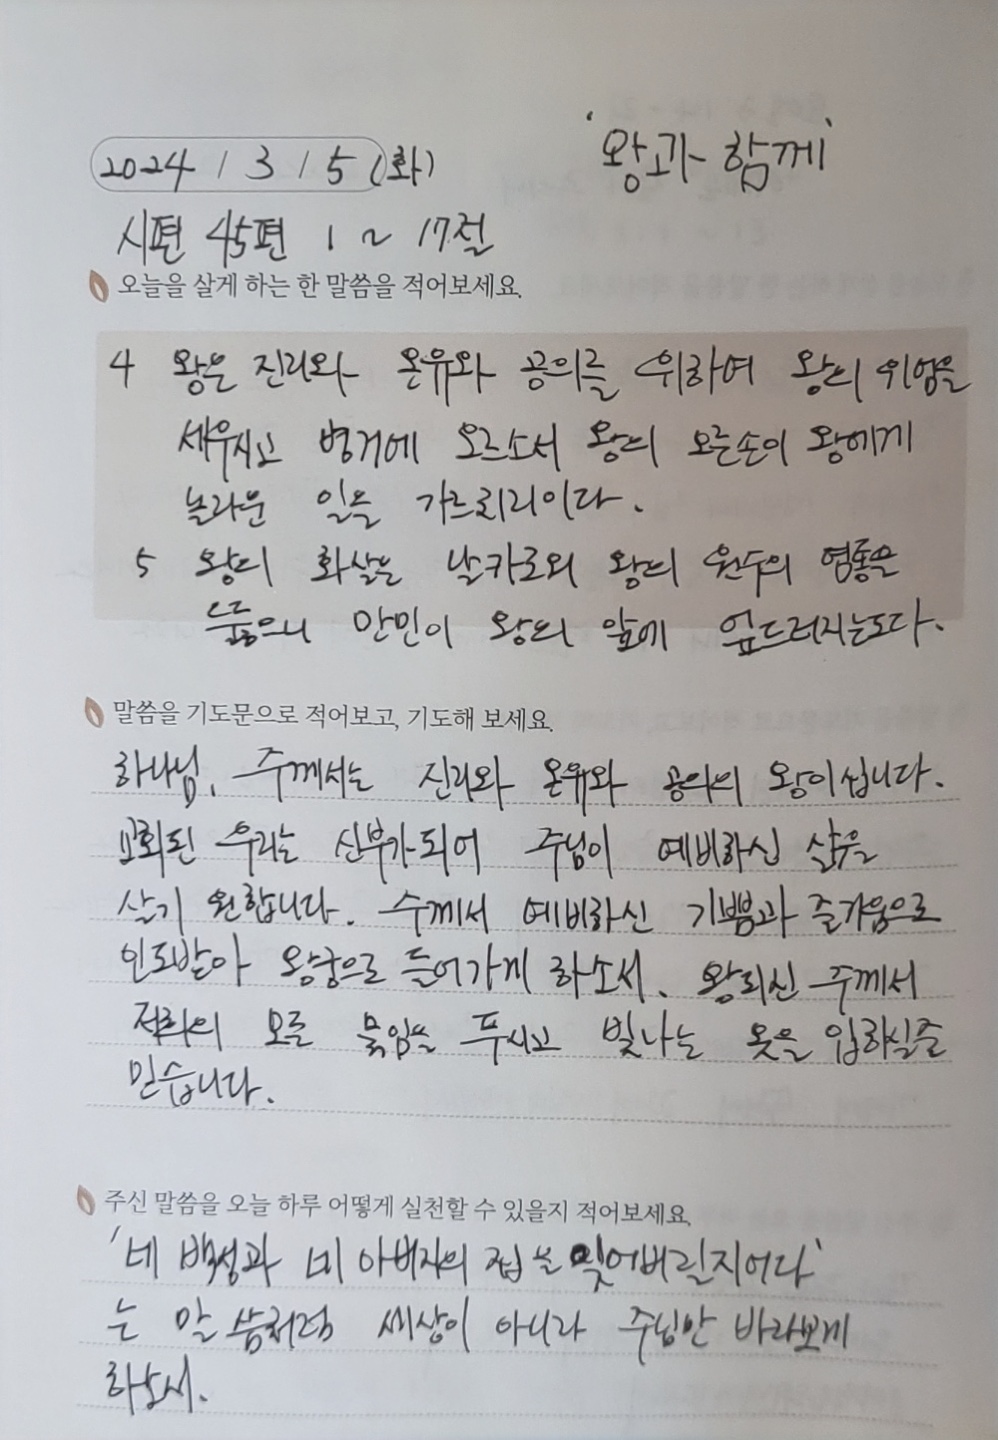 2024 / 3 / 5 (화) '왕과 함께'
시편 45편 1 ~ 17절
오늘을 살게 하는 한 말씀을 적어보세요.
4 왕은 진리와 온유와 공의를 위하여 왕의 위엄을
세우시고 병거에 오르소서 왕의 오른손이 왕에게
놀라운 일을 가르치리이다.
5 왕의 화살은 날카로와 왕의 원수의 염통을
뚫으니 만민이 왕의 앞에 엎드러지는도다.
말씀을 기도문으로 적어보고, 기도해 보세요.
하나님, 주께서는 진리와 온유와 공의의 왕이십니다.
교회된 우리는 신부가 되어 주님이 예비하신 삶을
살기 원합니다. 주께서 예비하신 기쁨과 즐거움으로
인도받아 왕궁으로 들어가게 하소서. 왕되신 주께서
모든 묶임을 푸시고 빛나는 옷을 입히실줄
믿습니다.
주신 말씀을 오늘 하루 어떻게 실천할 수 있을지 적어보세요.
'네 백성과 네 아버지의 집을 잊어버릴지어다'
는 말씀처럼 세상이 아니라 주님만 바라보게
하소서.